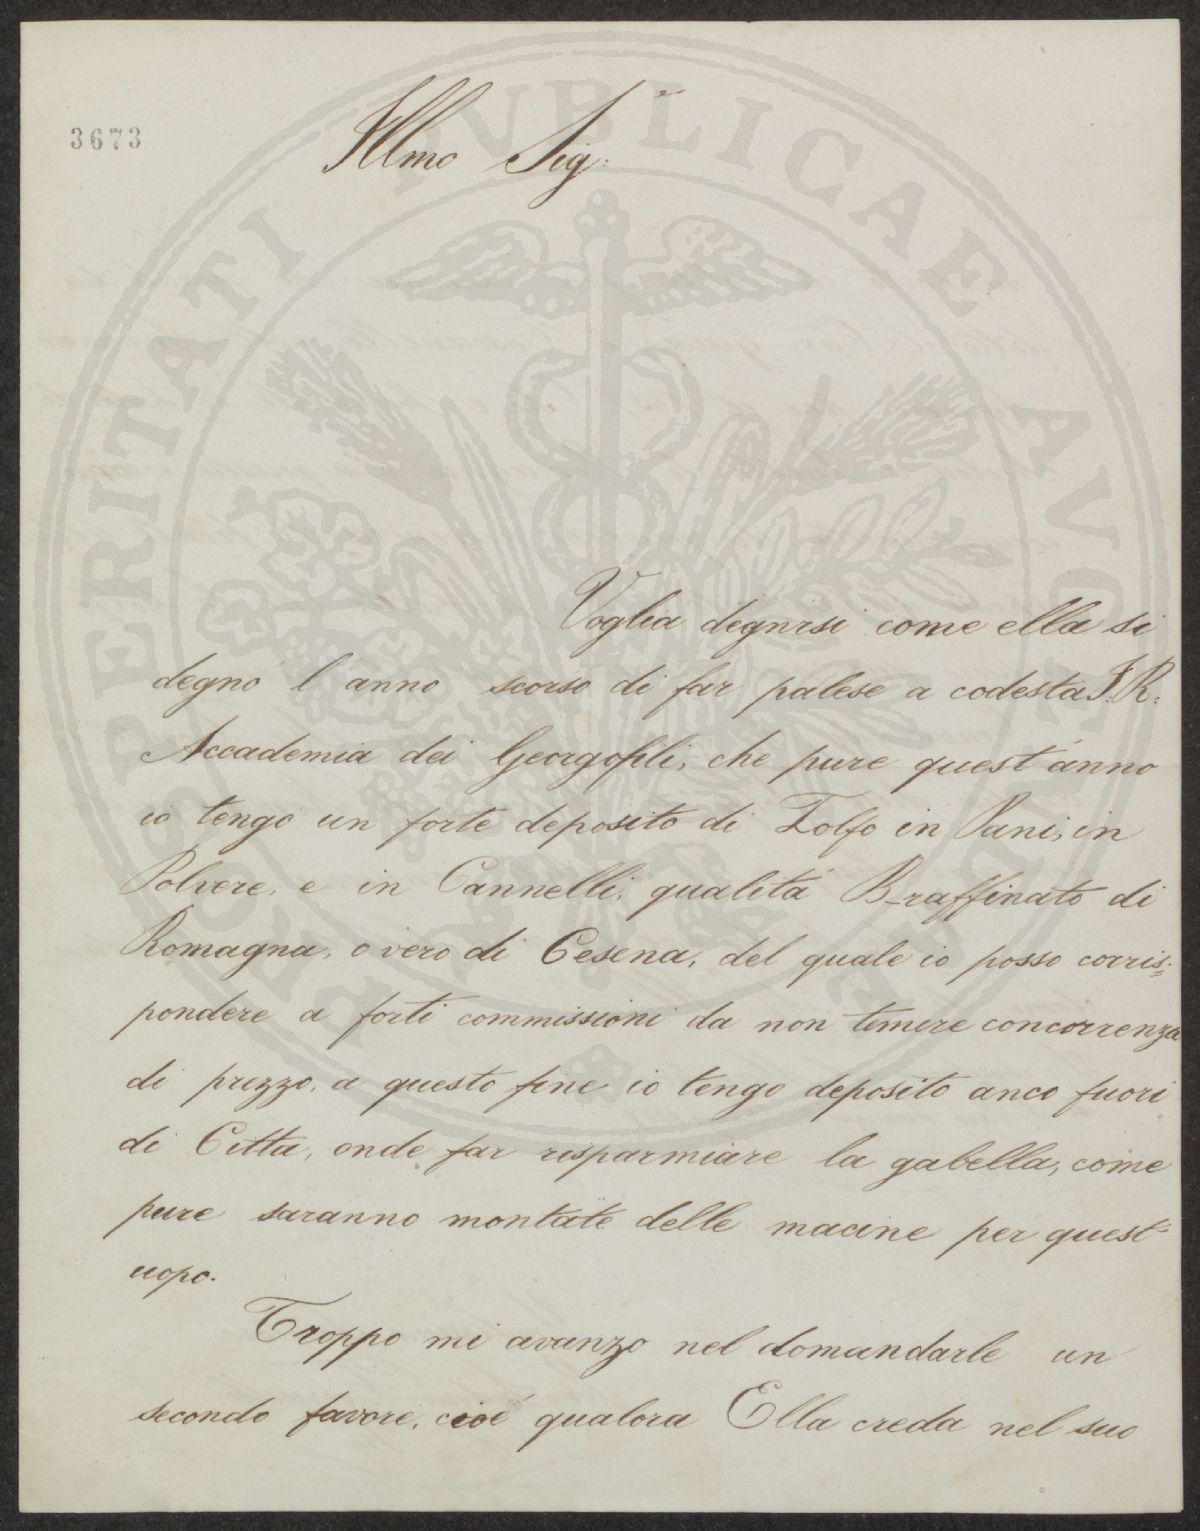 3673
Illmo Sig:r
Voglia degnirsi come ella si
degnó l'anno scorso di far palese a codesta I. R:
Accademia dei Georgofili, che pure quest'anno
io tengo un forte deposito di Zolfo in Pani, in
Polvere, e in Cannelli, qualitá B_raffinato di
Romagna, o vero di Cesena, del quale io posso corris=
pondere a forti commissioni da non temere concorrenza
di prezzo, a questo fine io tengo deposito anco fuori
di Citta, onde far risparmiare la gabella, come
pure saranno montate delle macine per quest'
uopo.
Troppo mi avanzo nel domandarle un
secondo favore, cioé qualora Ella creda nel suo
PROSPERITATI PUBLICAE AUGENDAE